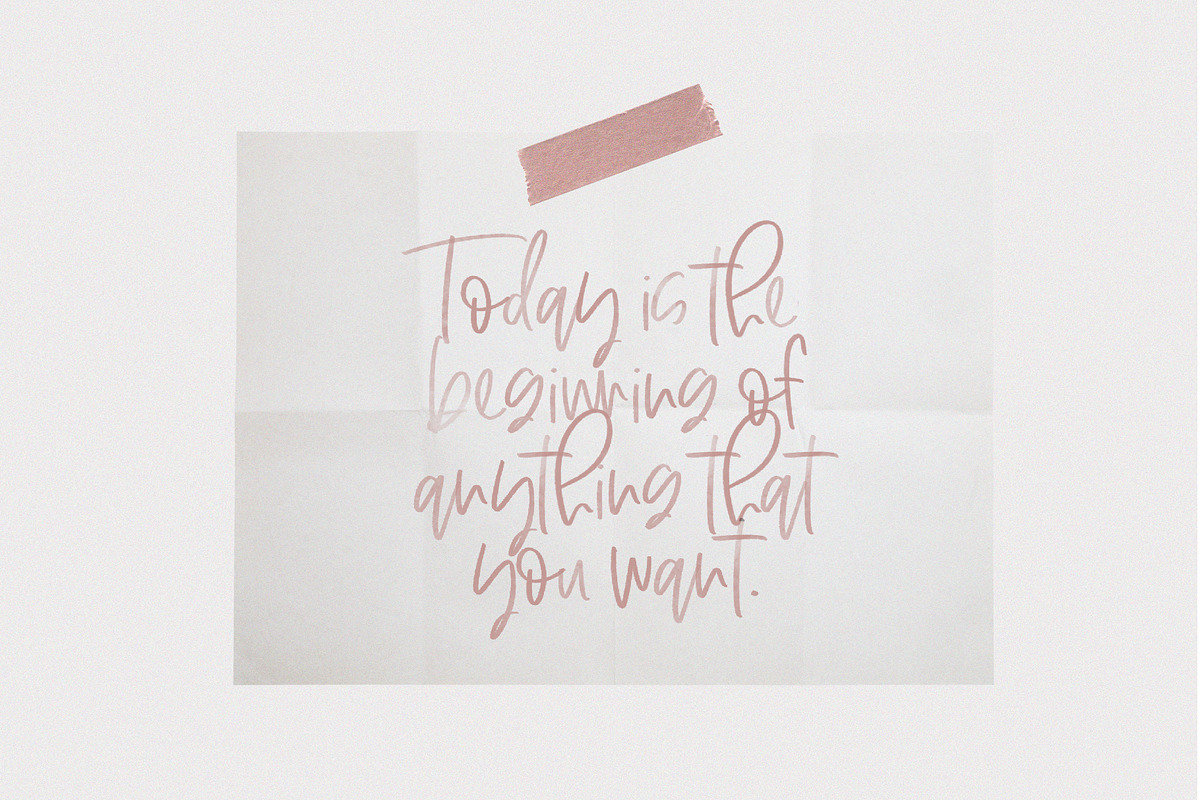 Today is the
beginning of
anything that
you want.